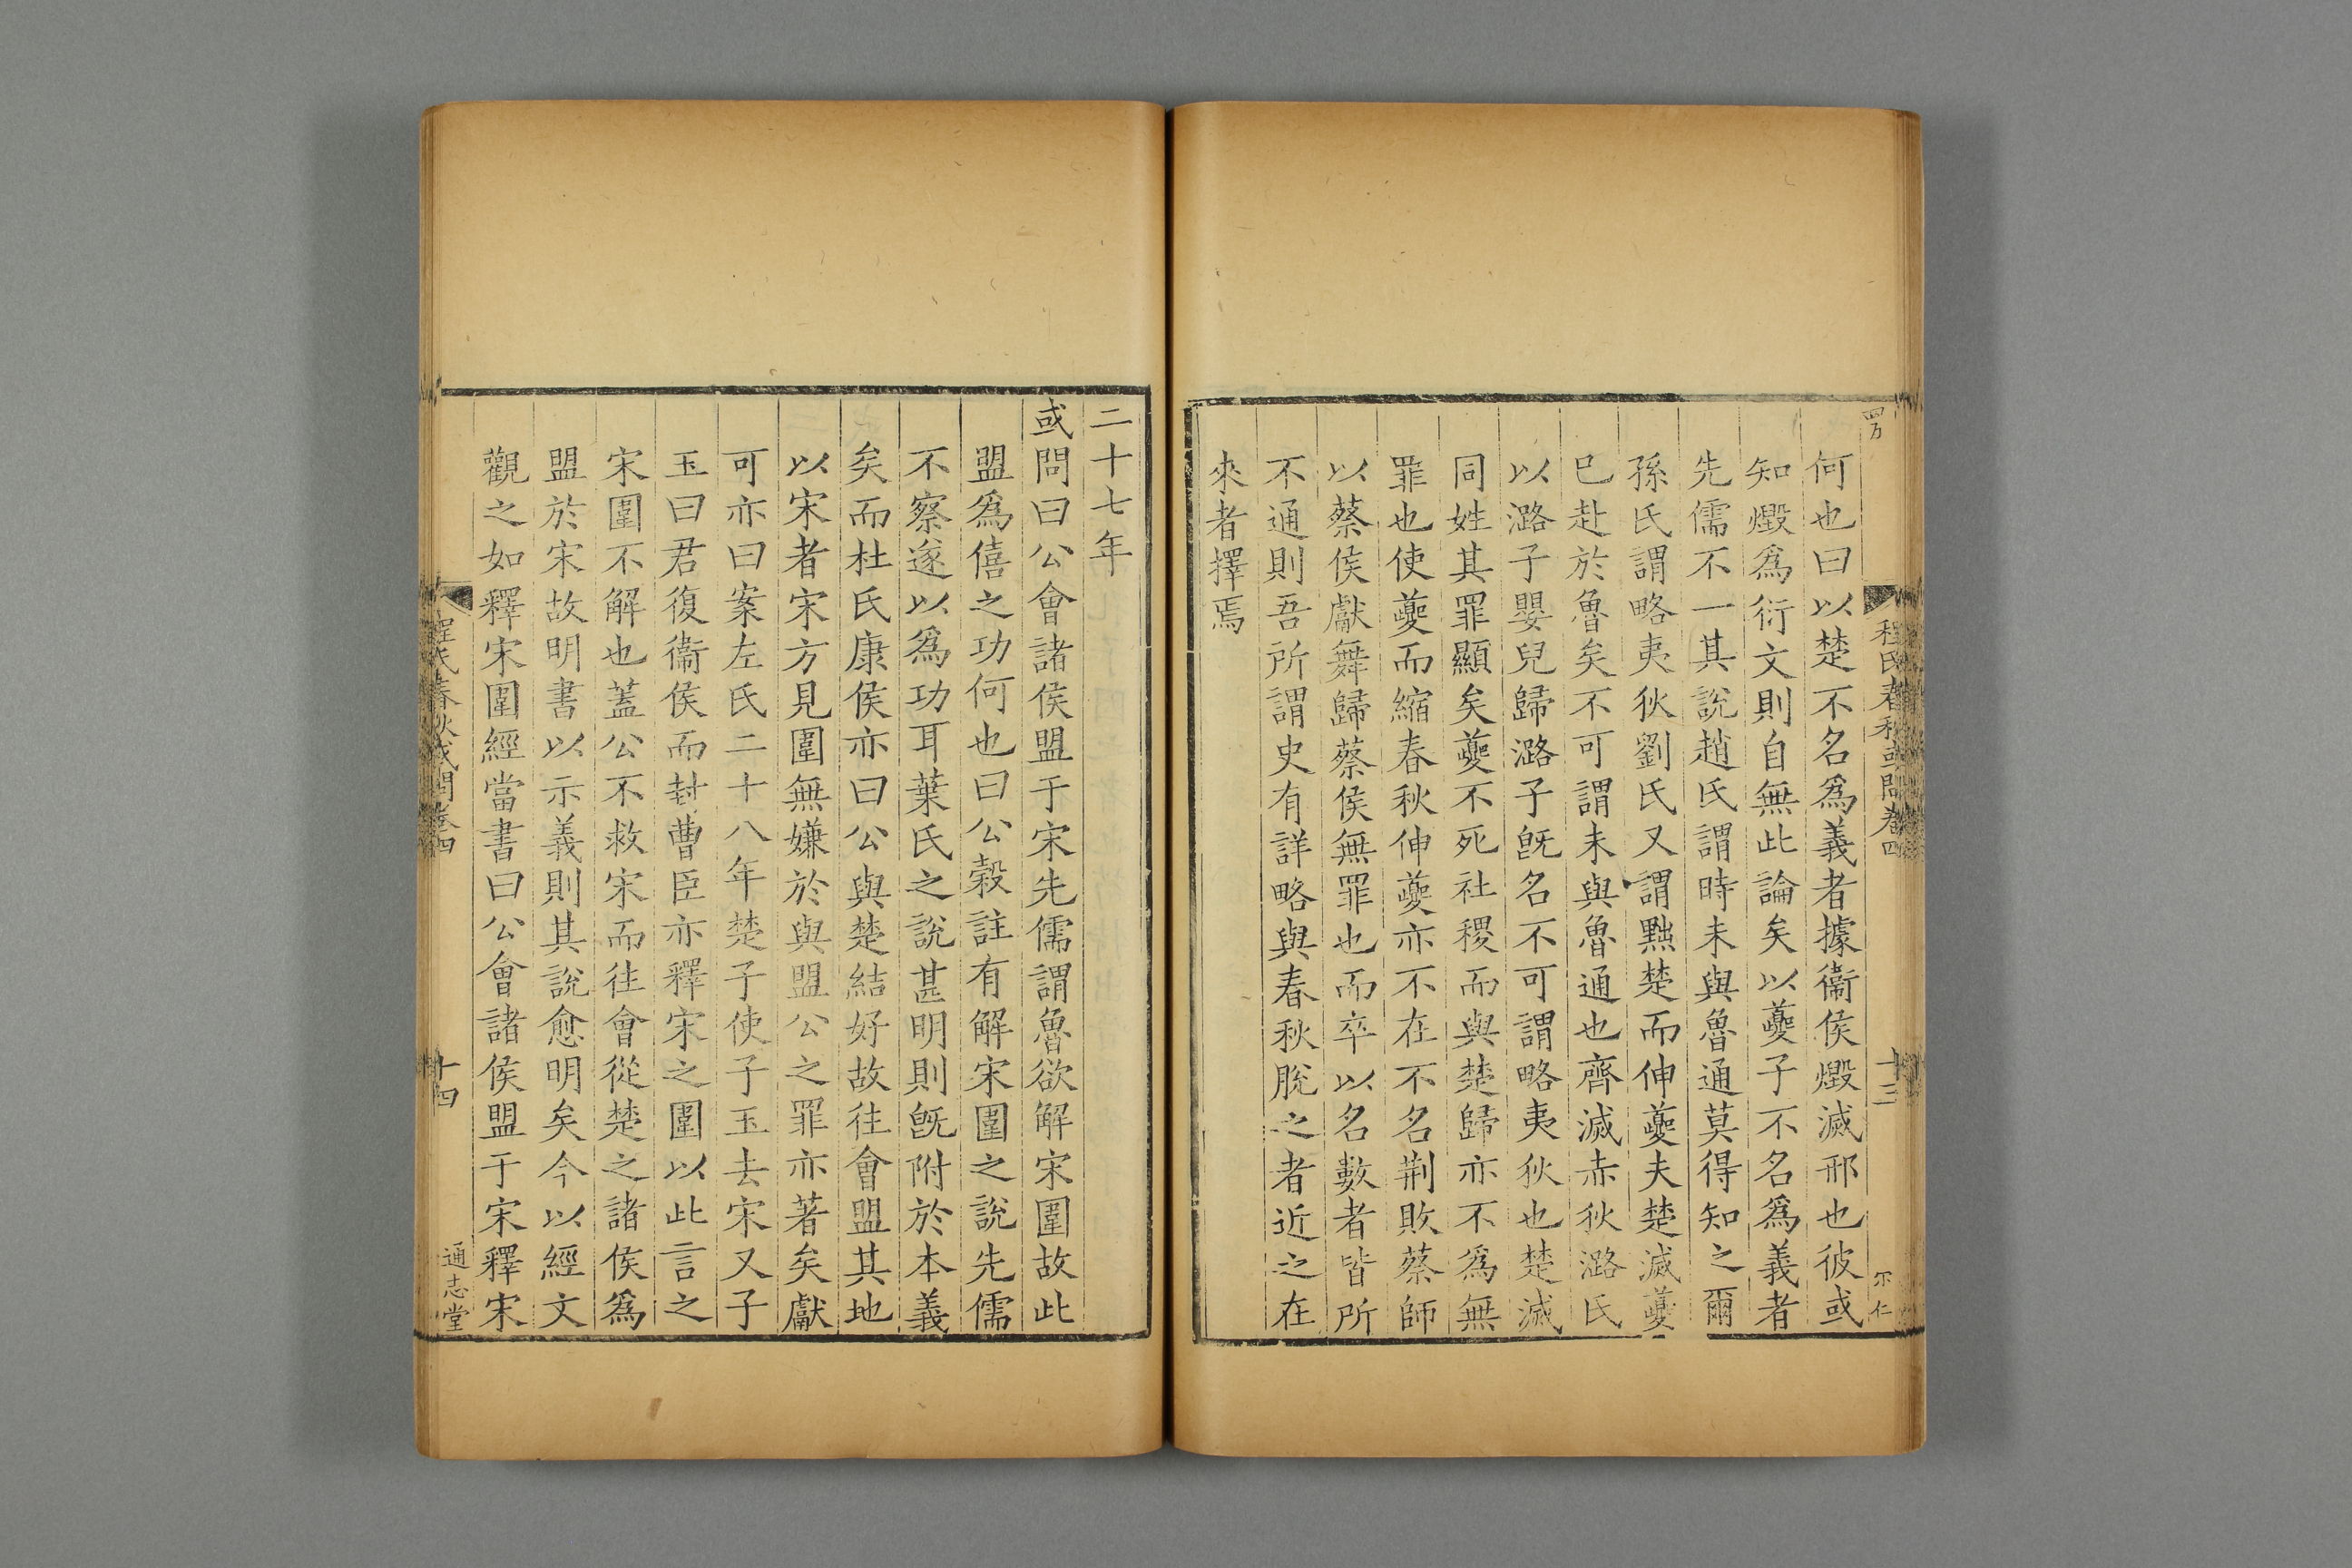 何也曰以楚不名爲義者據衞侯燬滅邢也彼或
知燬爲衍文則自無此論矣以夔子不名爲義者
先儒不一其說趙氏謂時未與魯通莫得知之爾
孫氏謂略夷狄劉氏又謂黜楚而伸夔夫楚滅夔
已赴於魯矣不可謂未與魯通也齊滅赤狄潞氏
以潞子嬰兒歸潞子旣名不可謂略夷狄也楚滅
同姓其罪顯矣夔不死社稷而與楚歸亦不爲無
罪也使夔而縮春秋伸夔亦不在不名荆敗蔡師
以蔡侯獻舞歸蔡侯無罪也而卒以名數者皆所
不通則吾所謂史有詳略與春秋脫之者近之在
來者擇焉
程氏春秋或問卷四
十三
二十七年
或問曰公會諸侯盟于宋先儒謂魯欲解宋圍故此
盟爲僖之功何也曰公榖註有解宋圍之說先儒
不察遂以爲功耳葉氏之說甚明則旣附於本義
矣而杜氏康侯亦曰公與楚結好故往會盟其地
以宋者宋方見圍無嫌於與盟公之罪亦著矣獻
可亦曰案左氏二十八年楚子使子玉去宋又子
玉曰君復衞侯而封曹臣亦釋宋之圍以此言之
宋圍不解也蓋公不救宋而往會從楚之諸侯爲
盟於宋故明書以示義則其說愈明矣今以經文
觀之如釋宋圍經當書曰公會諸侯盟于宋釋宋
程氏春秋或問卷四
十四
通志堂